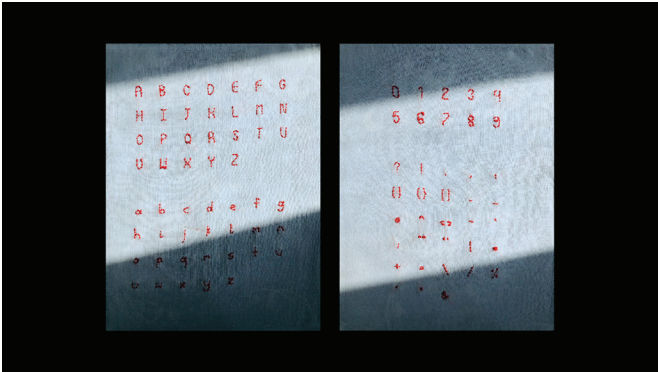 A B C D E F G
H I J K L M N
O P Q R S T U
V W X Y Z
a b c d e f g
h i j k l m n
o p q r s t u
v w x y z
0 1 2 3 4
5 6 7 8 9
? ! . , :
() {} []